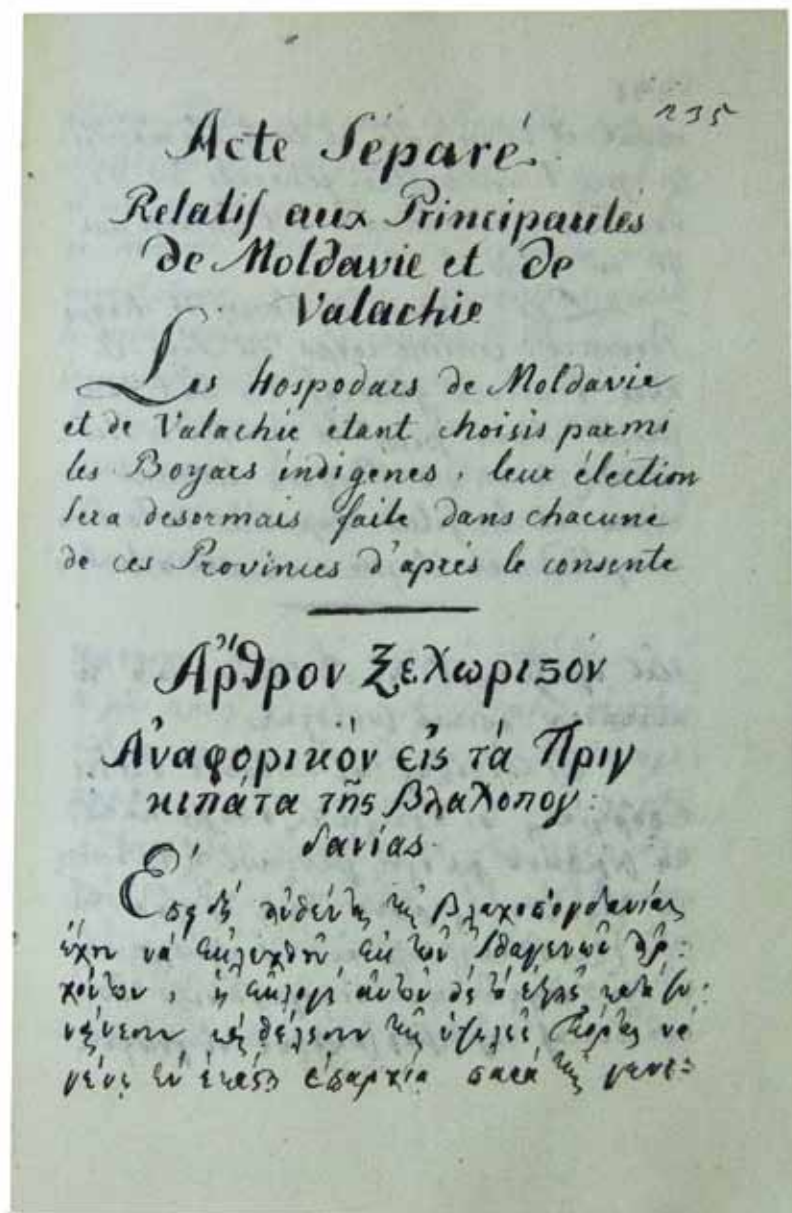 135
Acte Séparé.
Relatif aux Principautés
de Moldavie et de
Valachie
Les Hospodars de Moldavie
et de Valachie etant choisis parmi
les Boyars indigenes, leur élection
sera desormais faite dans chacune
de ces Provinces d'après le consente
Ἄρθρον Ξεχωριστόν
Ἀναφορικὸν εἰς τά Πριγ
κιπάτα τῆς Βλαχοπογ:
δανίας.
τῆς Βλαχοπογδανίας
ἔχουν νά ἐκλεχθοῦν ἐκ τῶν Ἰθαγενῶν Ἀρ:
χόντων, ἡ ἐκλογή αὐτῶν
τῆς Πόρτας νά
ἐπαρχία παρά τῆς γενι: